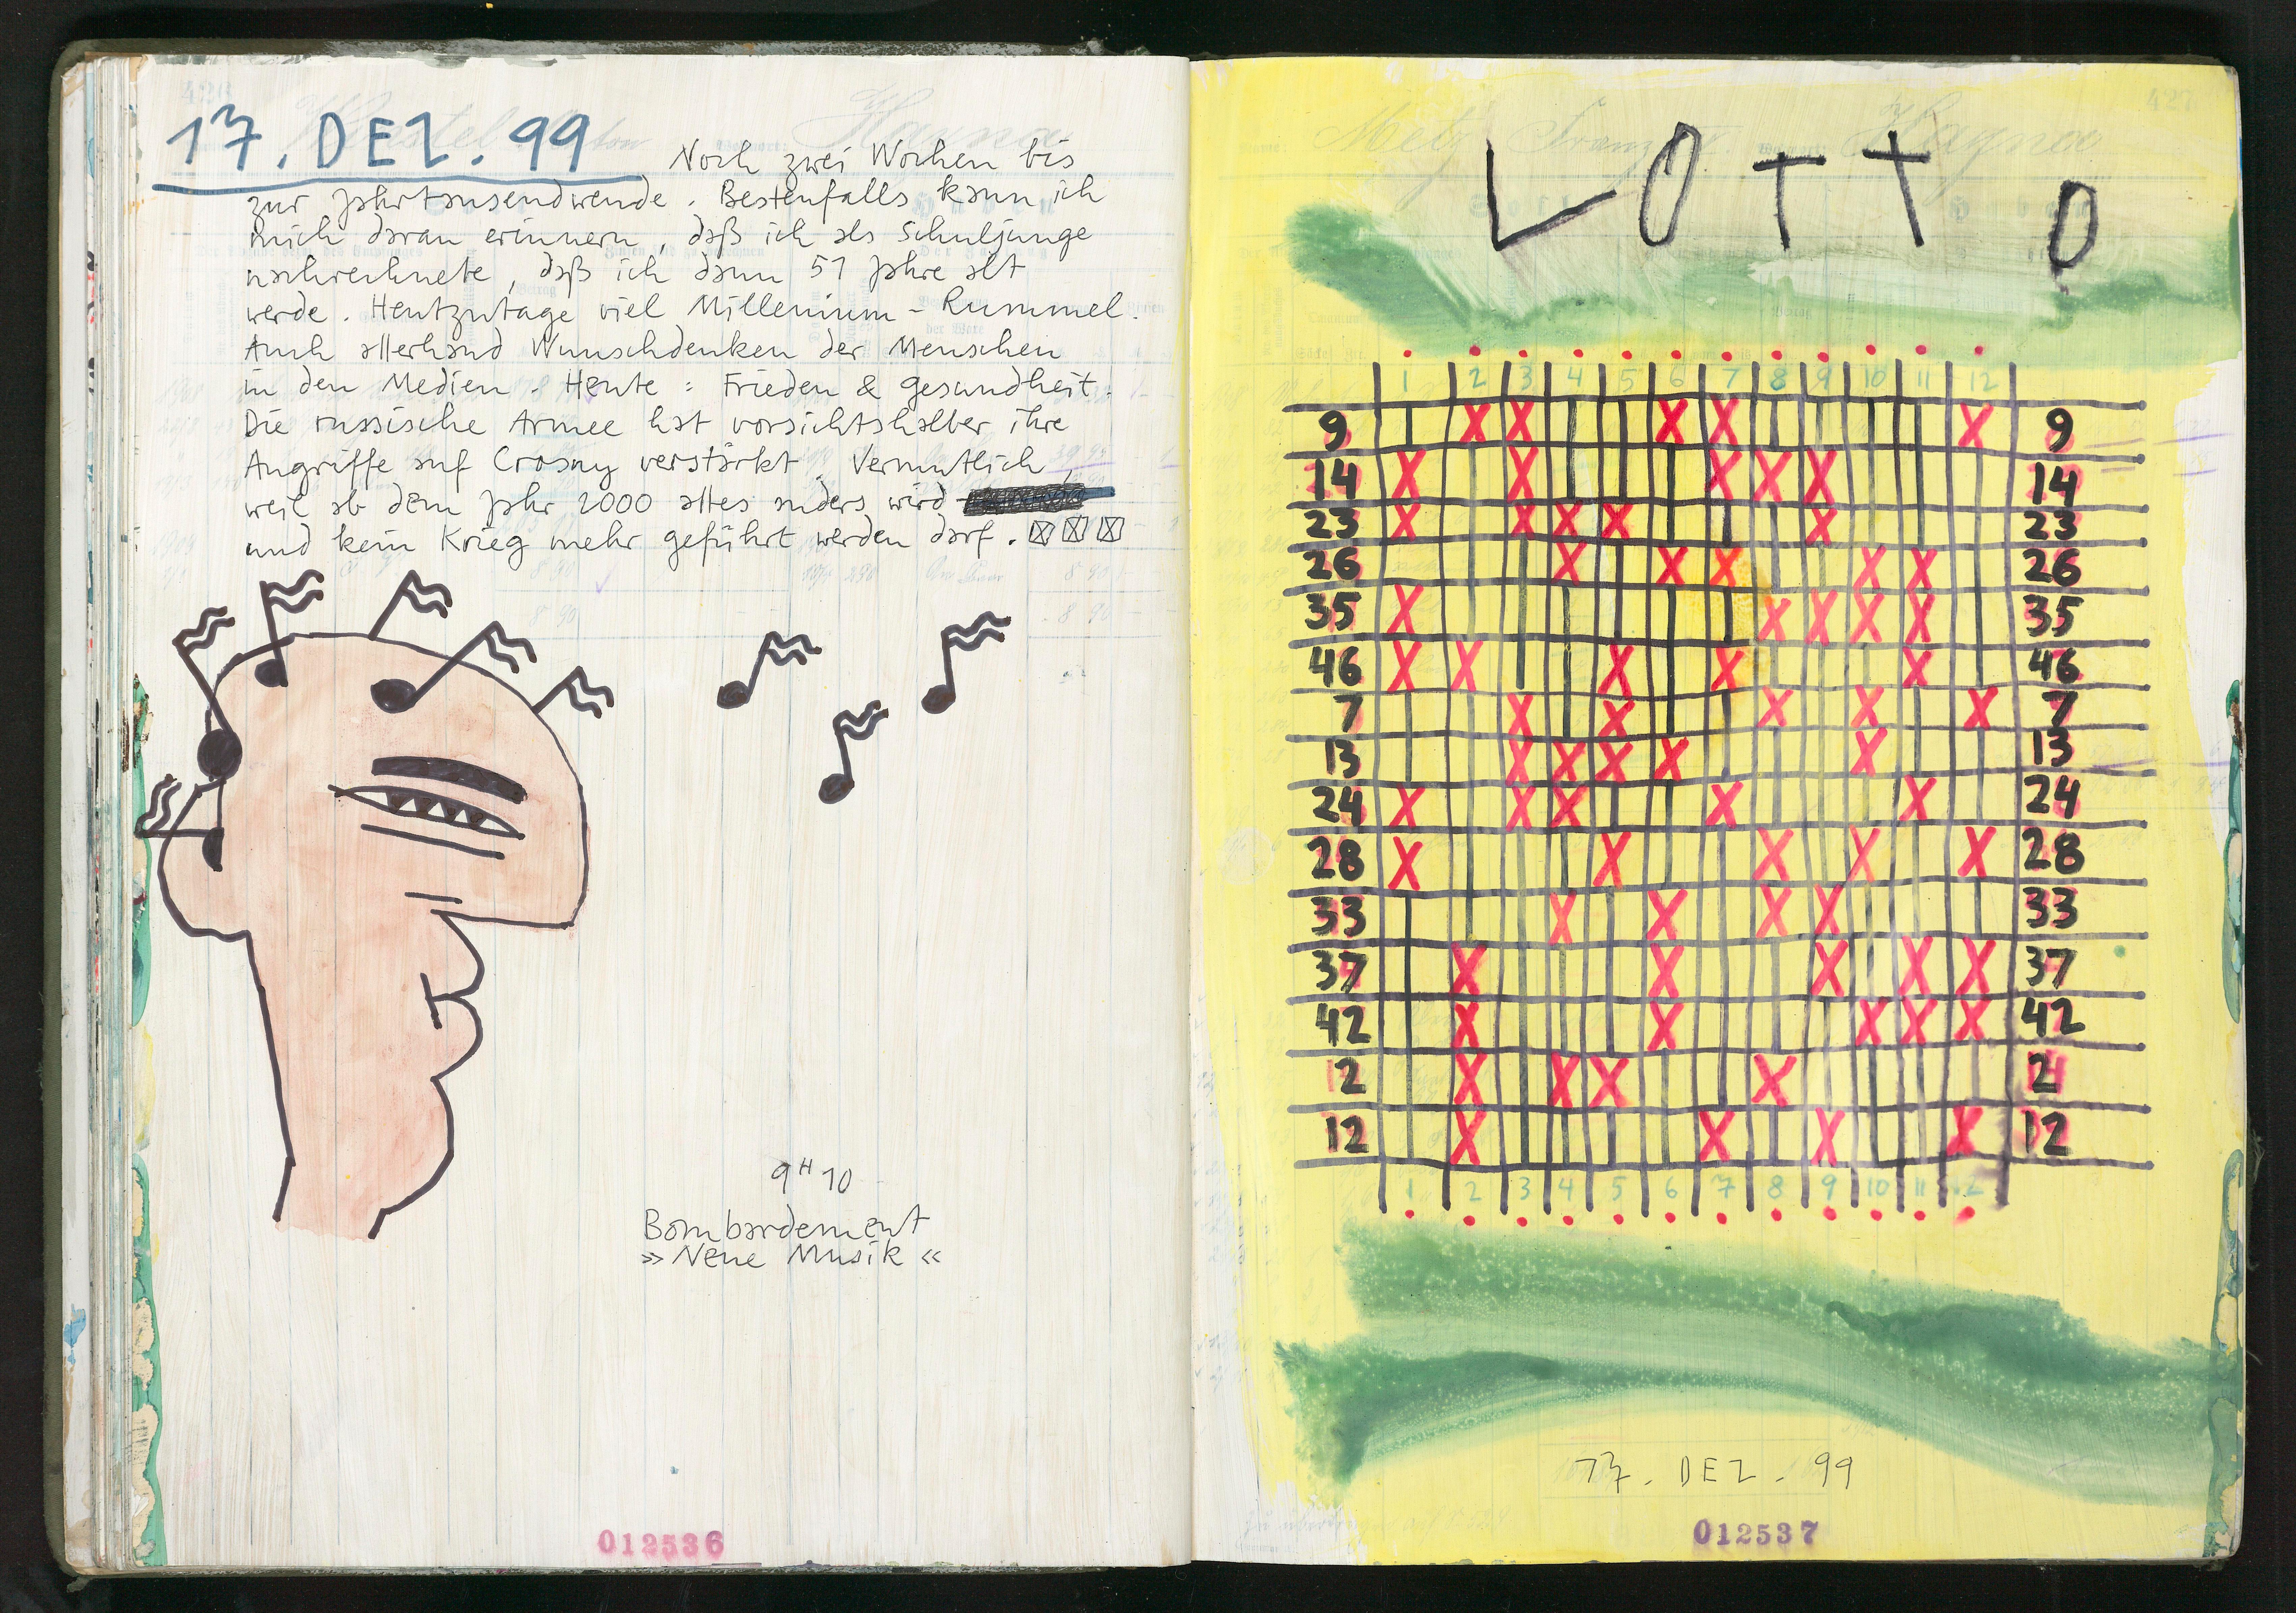 17. DEZ. 99 Noch zwei Wochen bis
zur Jahrtausendwende. Bestenfalls kann ich
mich daran erinnern, daß ich als Schuljunge
nachrechnete, daß ich dann 51 Jahre alt
werde. Heutzutage viel Millenium-Rummel.
Auch allerhand Wunschdenken der Menschen
in den Medien Heute: Frieden & Gesundheit.
Die russische Armee hat vorsichtshalber ihre
Angriffe auf Crosny verstärkt. Vermutlich,
weil ab dem Jahr 2000 alles anders wird
und kein Krieg mehr geführt werden darf.
9H10
Bombardement
»Neue Musik«
012536
LOTTO
1 2 3 4 5 6 7 8 9 10 11 12
9 X X X X X 9
14 X X X X X 14
23 X X X X X 23
26 X X X X X 26
35 X X X X X 35
46 X X X X X 46
7 X X X X X 7
13 X X X X X 13
24 X X X X X 24
28 X X X X X 28
33 X X X X 33
37 X X X X X 37
42 X X X X X 42
2 X X X X 2
12 X X X X 12
1 2 3 4 5 6 7 8 9 10 11 12
17. DEZ. 99
012537